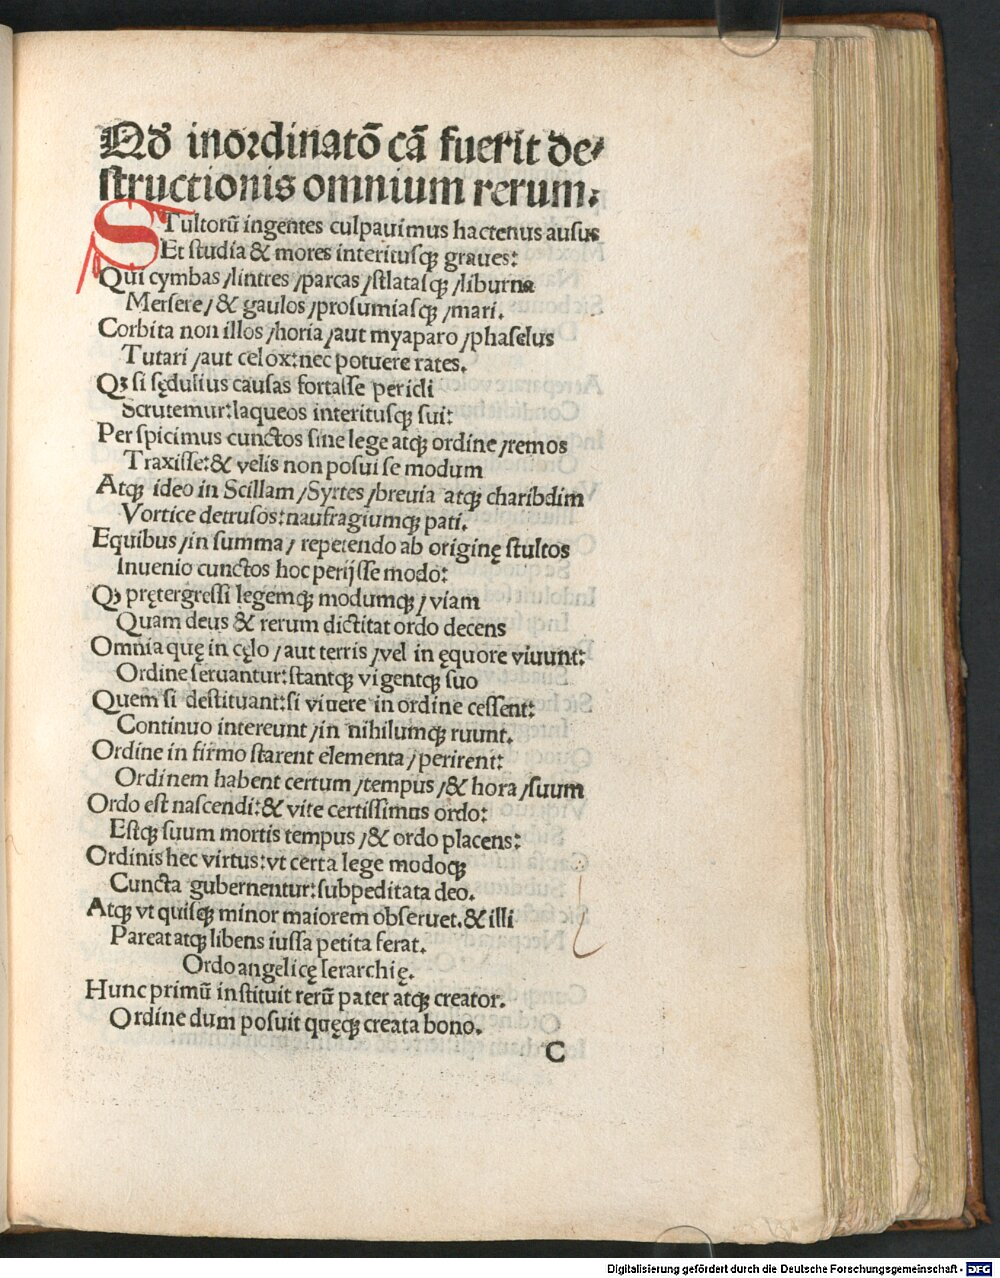 Qđ inordinatō cā fuerit de⸗
structionis omnium rerum.
STultorū ingentes culpauimus hactenus ausus
Et studia & mores interitusqꝫ graues:
Qui cymbas / lintres / parcas / stlatasqꝫ / liburna
Mersere / & gaulos / prosumiasqꝫ / mari.
Corbita non illos / horia / aut myaparo / phaselus
Tutari / aut celox: nec potuere rates.
Qꝫ si sędulius causas fortasse pericli
Scrutemur: laqueos interitusqꝫ sui:
Perspicimus cunctos sine lege atqꝫ ordine / remos
Traxisse: & velis non posuisse modum
Atqꝫ ideo in Scillam / Syrtes / breuia atqꝫ charibdim
Vortice detrusos: naufragiumqꝫ pati.
Equibus / in summa / repetendo ab originę stultos
Inuenio cunctos hoc perijsse modo:
Qꝫ prętergressi legemqꝫ modumqꝫ / viam
Quam deus & rerum dictitat ordo decens
Omnia quę in cęlo / aut terris / vel in ęquore viuunt:
Ordine seruantur: stantqꝫ vigentqꝫ suo
Quem si destituant: si viuere in ordine cessent:
Continuo intereunt / in nihilumqꝫ ruunt.
Ordine in firmo starent elementa / perirent:
Ordinem habent certum / tempus / & hora / suum
Ordo est nascendi: & vite certissimus ordo:
Estqꝫ suum mortis tempus / & ordo placens:
Ordinis hec virtus: vt certa lege modoqꝫ
Cuncta gubernentur: subpeditata deo.
Atqꝫ vt quisqꝫ minor maiorem obseruet. & illi
Pareat atqꝫ libens iussa petita ferat.
Ordo angelicę Ierarchię.
Hunc primū instituit rerū pater atqꝫ creator.
Ordine dum posuit quęqꝫ creata bono.
C
Digitalisierung gefördert durch die Deutsche Forschungsgemeinschaft - DFG